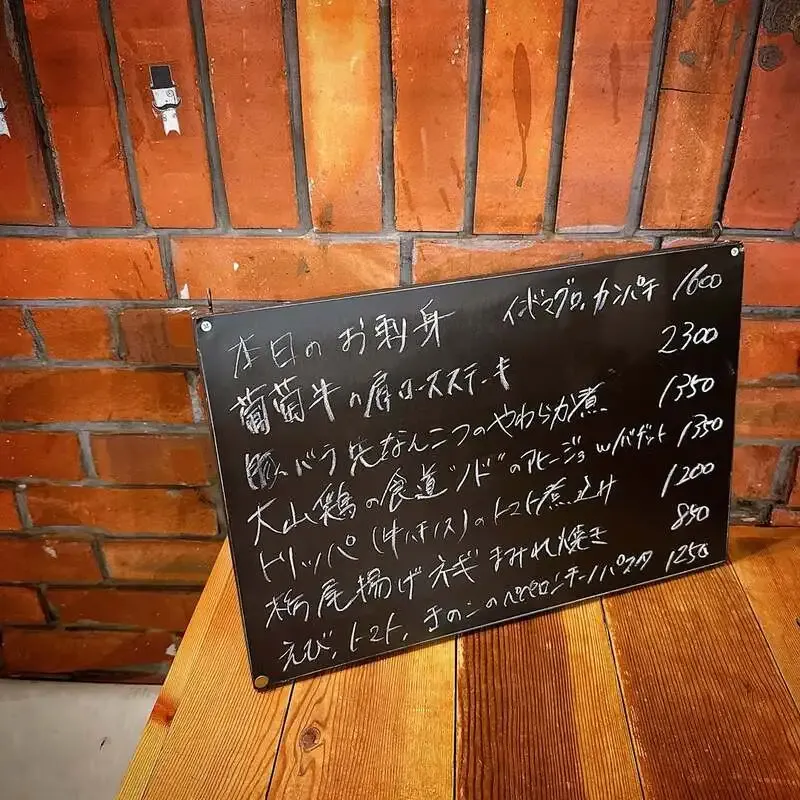 本日のお刺身 インドマグロ、カンパチ 1600
葡萄牛の肩ロースステーキ 2300
豚バラ先なんこつのやわらか煮 1350
大山鶏の食道"ノド"のアヒージョ w/バゲット 1350
トリッパ(牛ハチノス)のトマト煮込み 1200
栃尾揚げネギまみれ焼き 850
えび、トマト、きのこのペペロンチーノパスタ 1250